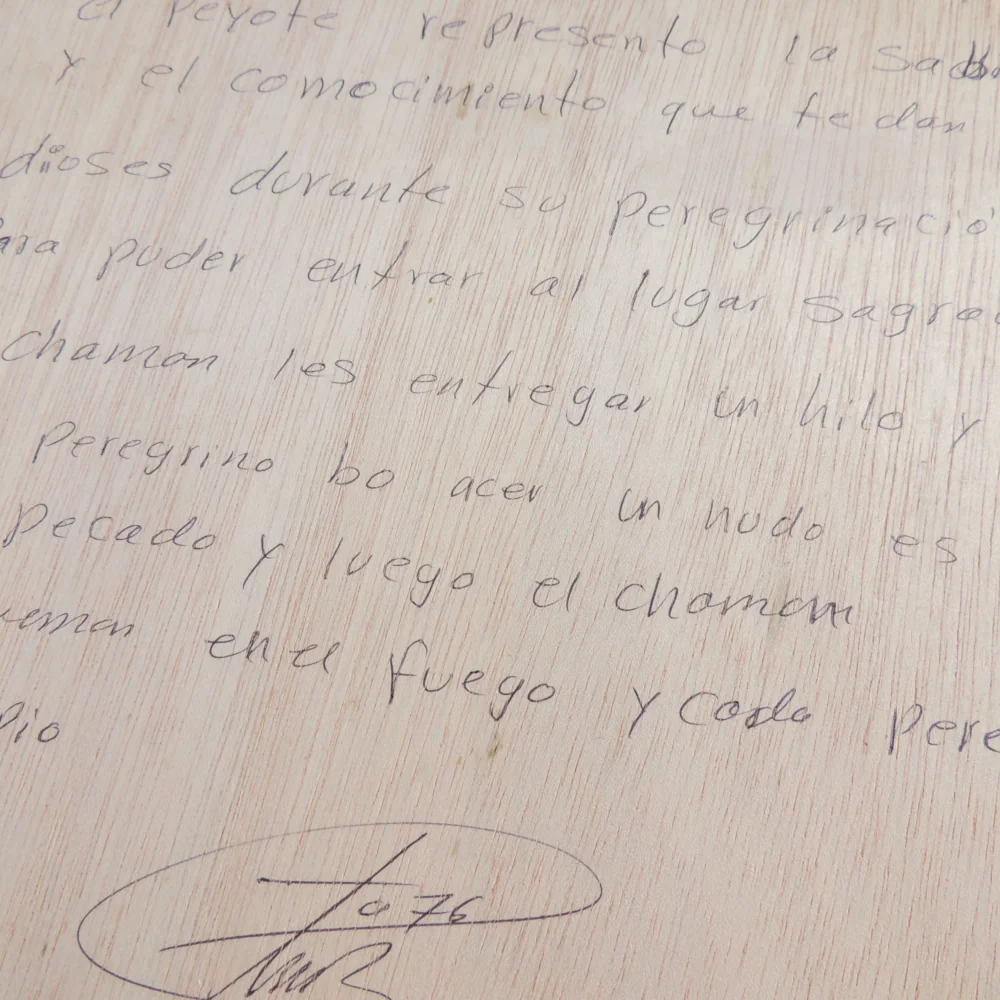 el Peyote represento la sadb
y el comocimiento que te dan
dioses durante su peregrinació
ara puder entrar al lugar sagra
chaman les entregar un hilo y
peregrino bo acer un nudo es
pecado y luego el chamam
eman en el fuego y cada pere
pio